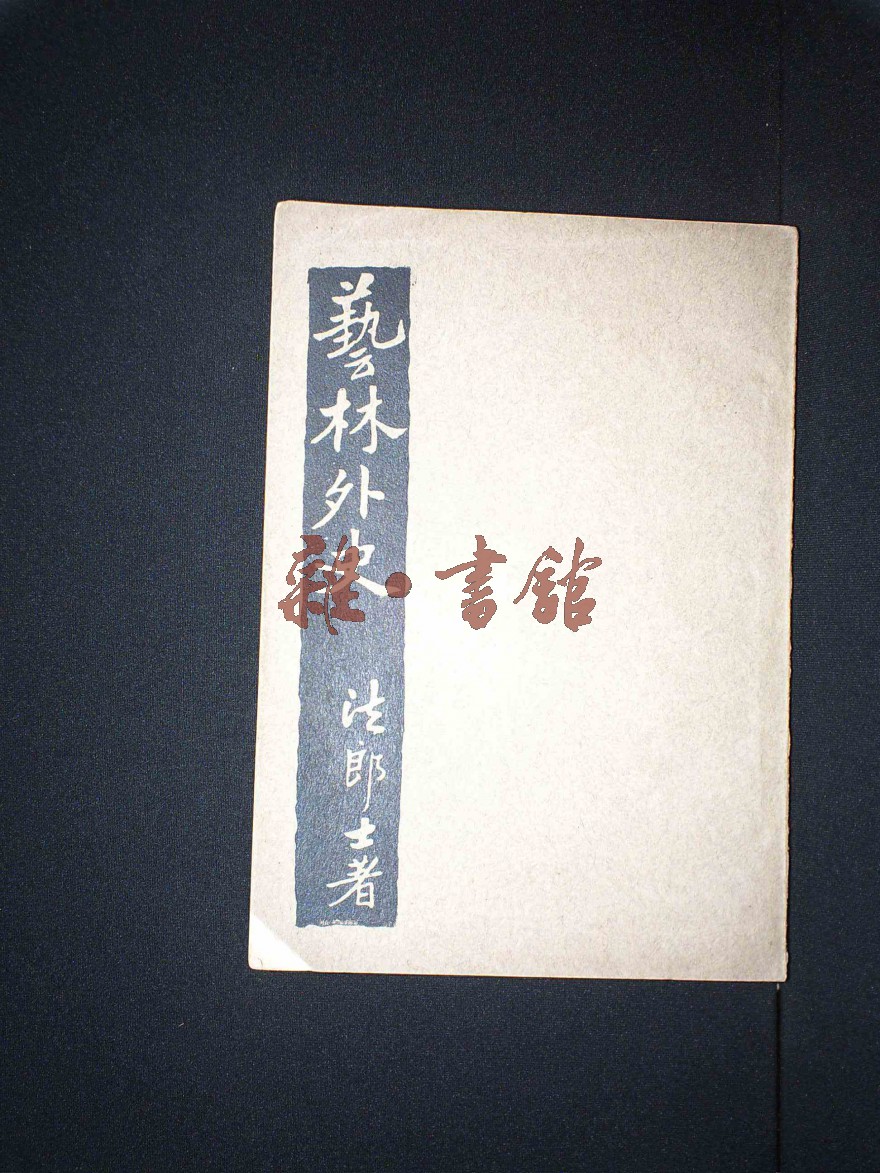 藝林外史
法郎士著
雜·書館